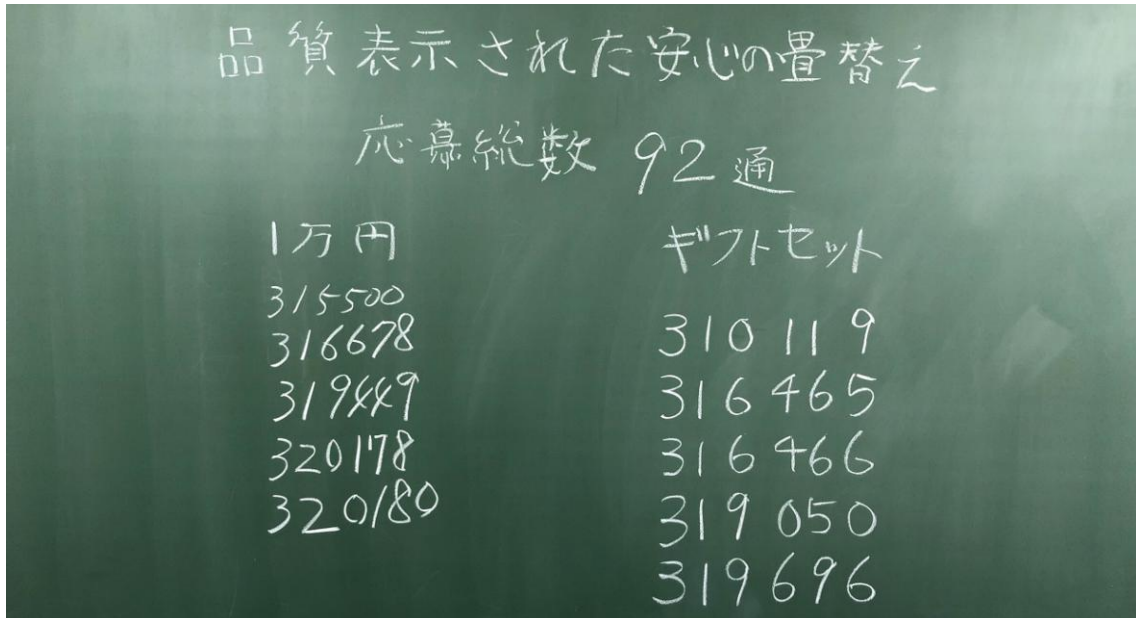 品質表示された安心の畳替え
応募総数 92通
1万円
315500
316678
319449
320178
320180
ギフトセット
310119
316465
316466
319050
319696